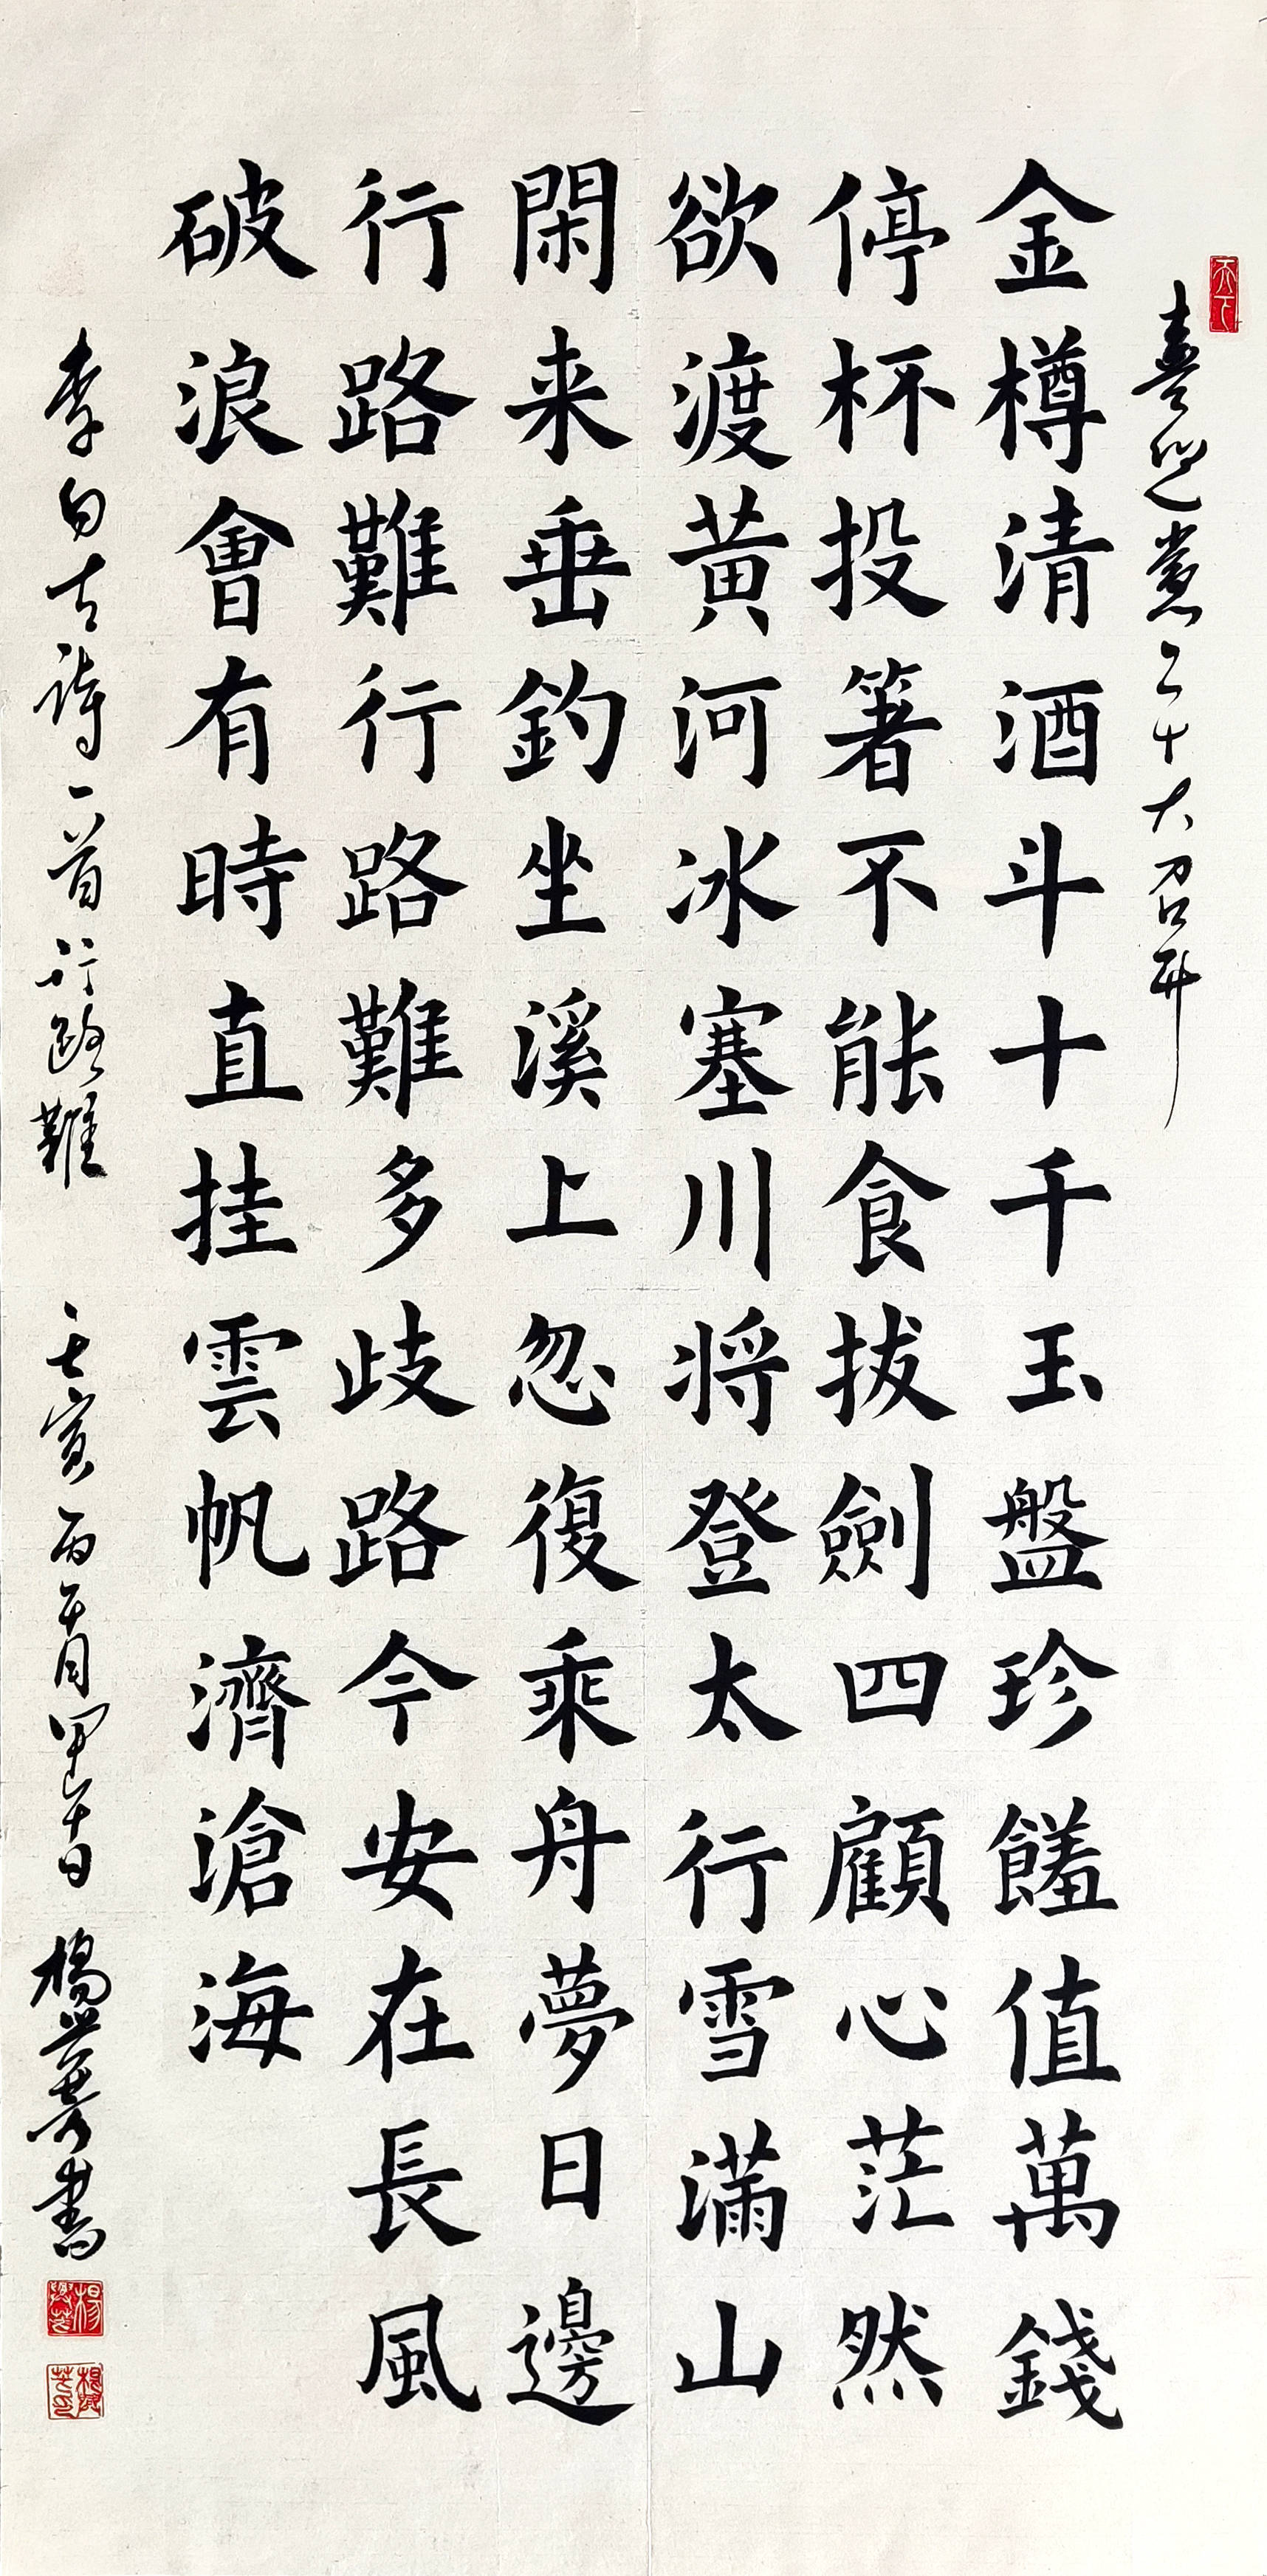 喜迎党二十大召开
金樽清酒斗十千玉盤珍饈值萬錢
停杯投箸不能食拔劍四顧心茫然
欲渡黄河冰塞川将登太行雪滿山
閑来垂釣坐溪上忽復乘舟夢日邊
行路難行路難多歧路今安在長風
破浪會有時直挂雲帆濟滄海
李白古詩一首行路難 壬寅 楊 書